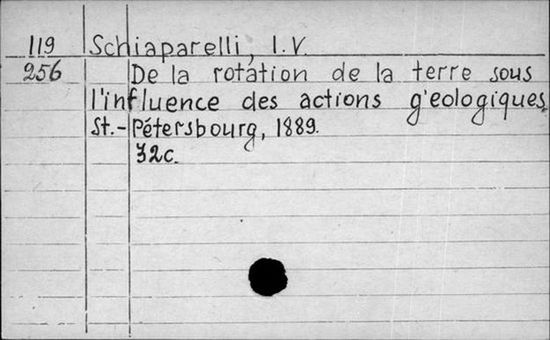 119 Schiaparelli, I.V.
256 De la rotation de la terre sous
l'influence des actions g'eologiques,
St.-Pétersbourg, 1889.
32c.